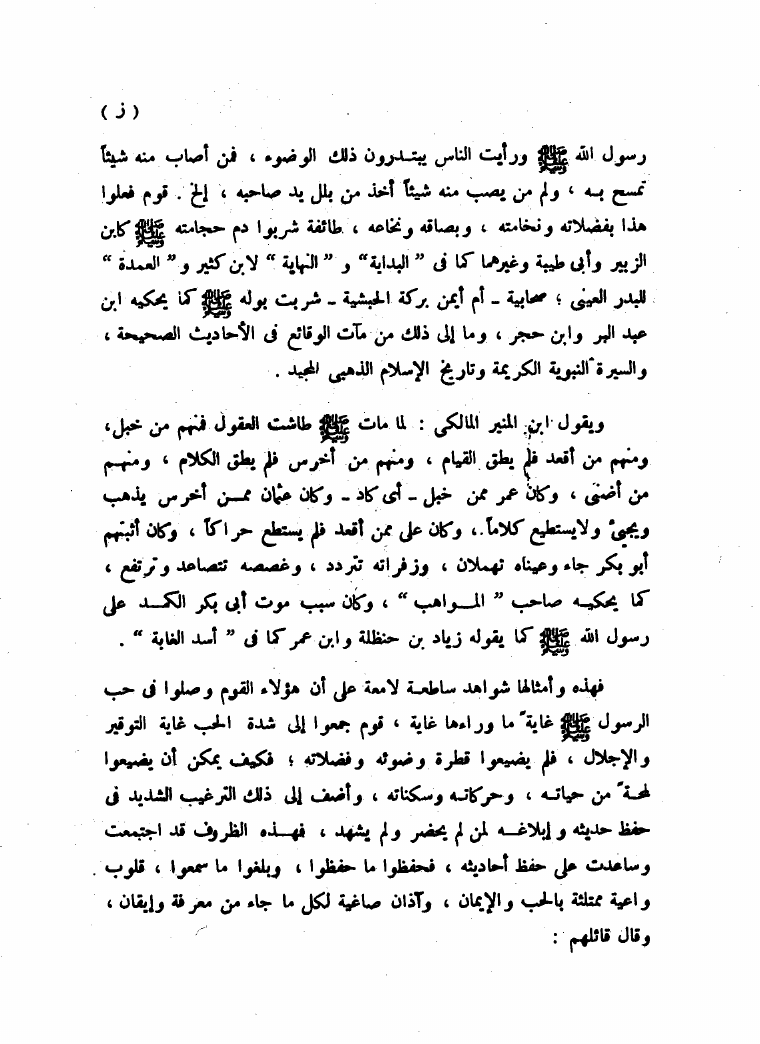 ( ز )
رسول الله ﷺ ورأيت الناس يبتدرون ذلك الوضوء ، فمن أصاب منه شيئاً
تمسح به ، ولم من يصب منه شيئاً أخذ من بلل يد صاحبه ، إلخ . قوم فعلوا
هذا بفضلاته ونخامته ، وبصاقه ونخاعه ، طائفة شربوا دم حجامته ﷺ كابن
الزبير وأبى طيبة وغيرهما كما فى ” البداية “ و ” النهاية “ لابن كثير و ” العمدة “
للبدر العينى ؛ صحابية ـ أم أيمن بركة الحبشية ـ شربت بوله ﷺ كما يحكيه ابن
عبد البر وابن حجر ، وما إلى ذلك من مآت الوقائع فى الأحاديث الصحيحة ،
والسيرة النبوية الكريمة وتاريخ الإسلام الذهبى المجيد .
ويقول ابن المنير المالكى : لما مات ﷺ طاشت العقول فمنهم من خبل ،
ومنهم من أقعد فلم يطق القيام ، ومنهم من أخرس فلم يطق الكلام ، ومنهم
من أضنى ، وكان عمر ممن خبل ـ أى كاد ـ وكان عثمان ممن أخرس يذهب
ويجيئ ولايستطيع كلاماً ، وكان على ممن أقعد فلم يستطع حراكاً ، وكان أثبتهم
أبو بكر جاء وعيناه تهملان ، وزفراته تتردد ، وغصصه تتصاعد وترتفع ،
كما يحكيه صاحب ” المواهب “ ، وكان سبب موت أبى بكر الكمد على
رسول الله ﷺ كما يقوله زياد بن حنظلة وابن عمر كما فى ” أسد الغابة “ .
فهذه وأمثالها شواهد ساطعة لامعة على أن هؤلاء القوم وصلوا فى حب
الرسول ﷺ غاية ما وراءها غاية ، قوم جمعوا إلى شدة الحب غاية التوقير
والإجلال ، فلم يضيعوا قطرة وضوئه وفضلاته ؛ فكيف يمكن أن يضيعوا
لمحة من حياته ، وحركاته وسكناته ، وأضف إلى ذلك الترغيب الشديد فى
حفظ حديثه وإبلاغه لمن لم يحضر ولم يشهد ، فهذه الظروف قد اجتمعت
وساعدت على حفظ أحاديثه ، فحفظوا ما حفظوا ، وبلغوا ما سمعوا ، قلوب
واعية ممتلئة بالحب والإيمان ، وآذان صاغية لكل ما جاء من معرفة وإيقان ،
وقال قائلهم :